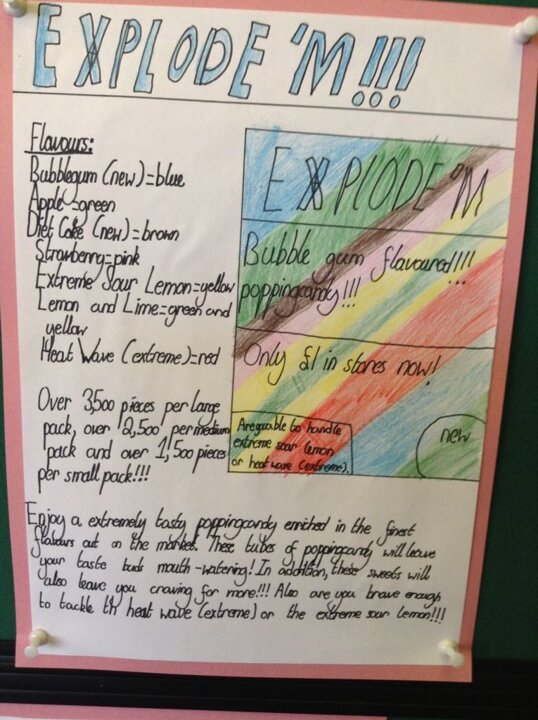 EXPLODE 'M!!!
Flavours:
Bubblegum (new)=blue
Apple=green
Diet Coke (new)=brown
Strawberry=pink
Extreme Sour Lemon=yellow
Lemon and Lime=green and
yellow
Heat Wave (extreme)=red
Over 3,500 pieces per large
pack, over 2,500 per medium
pack and over 1,500 pieces
per small pack!!!
EXPLODE 'M
Bubble gum flavoured!!!
poppingcandy!!!
Only £1 in stores now!
Are you able to handle
extreme sour lemon
or heat wave (extreme).
new
Enjoy a extremely tasty poppingcandy enriched in the finest
flavours out on the market. These tubes of poppingcandy will leave
your taste buds mouth-watering! In addition, these sweets will
also leave you craving for more!!! Also are you brave enough
to tackle th heat wave (extreme) or the extreme sour lemon!!!